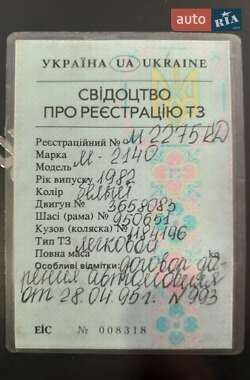 auto RIA
УКРАЇНА UA UKRAINE
СВІДОЦТВО
ПРО РЕЄСТРАЦІЮ ТЗ
Реєстраційний № М 2275 КД
Марка М-2140
Модель
Рік випуску 1982
Колір белый
Двигун № 3653083
Шасі (рама) № 950651
Кузов (коляска) № 1184196
Тип ТЗ легковой
Повна маса
Особливі відмітки: договор да-
рения автомобиля
от 28.04.95г. N 993
ЕІС № 008318